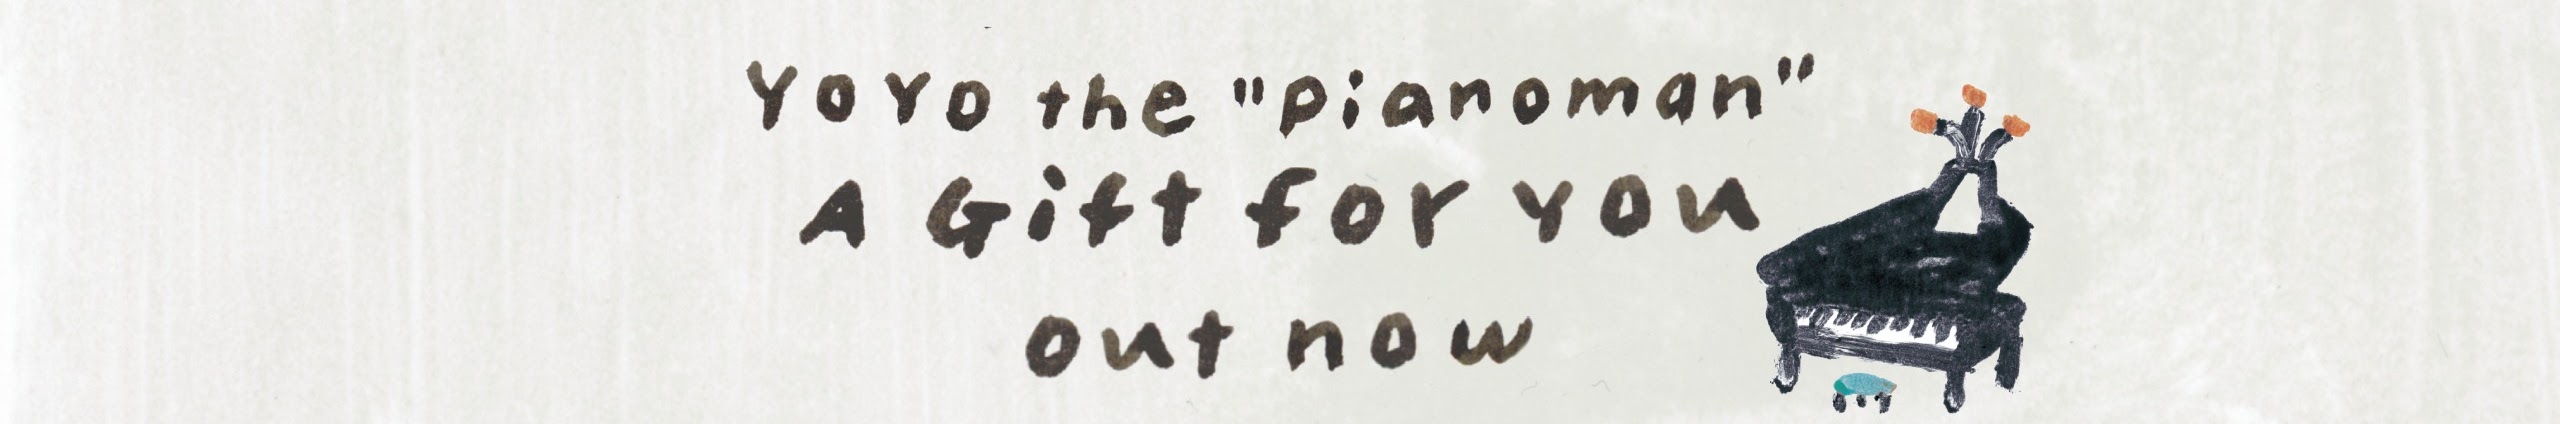 YoYo the "pianoman"
A Gift for you
out now